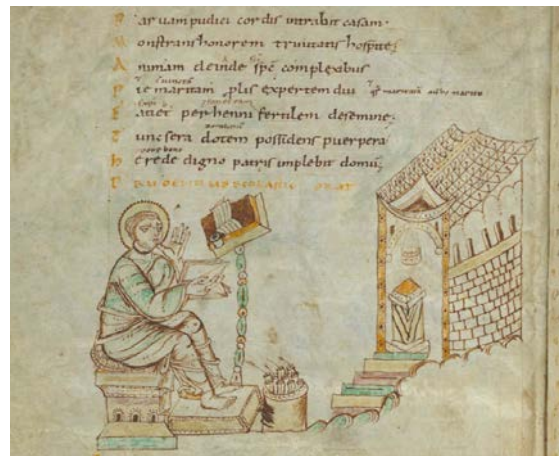 Paruam pudici cordis intrabit casam·
Monstrans honorem trinitatis hospite;
Animam deinde sps complexibus
Pie maritam plis expertem diu
Faciet perhenni fertilem desemine;
Tunc sera dotem possidens puerpera
Herede digno patris implebit domu;
ORAT